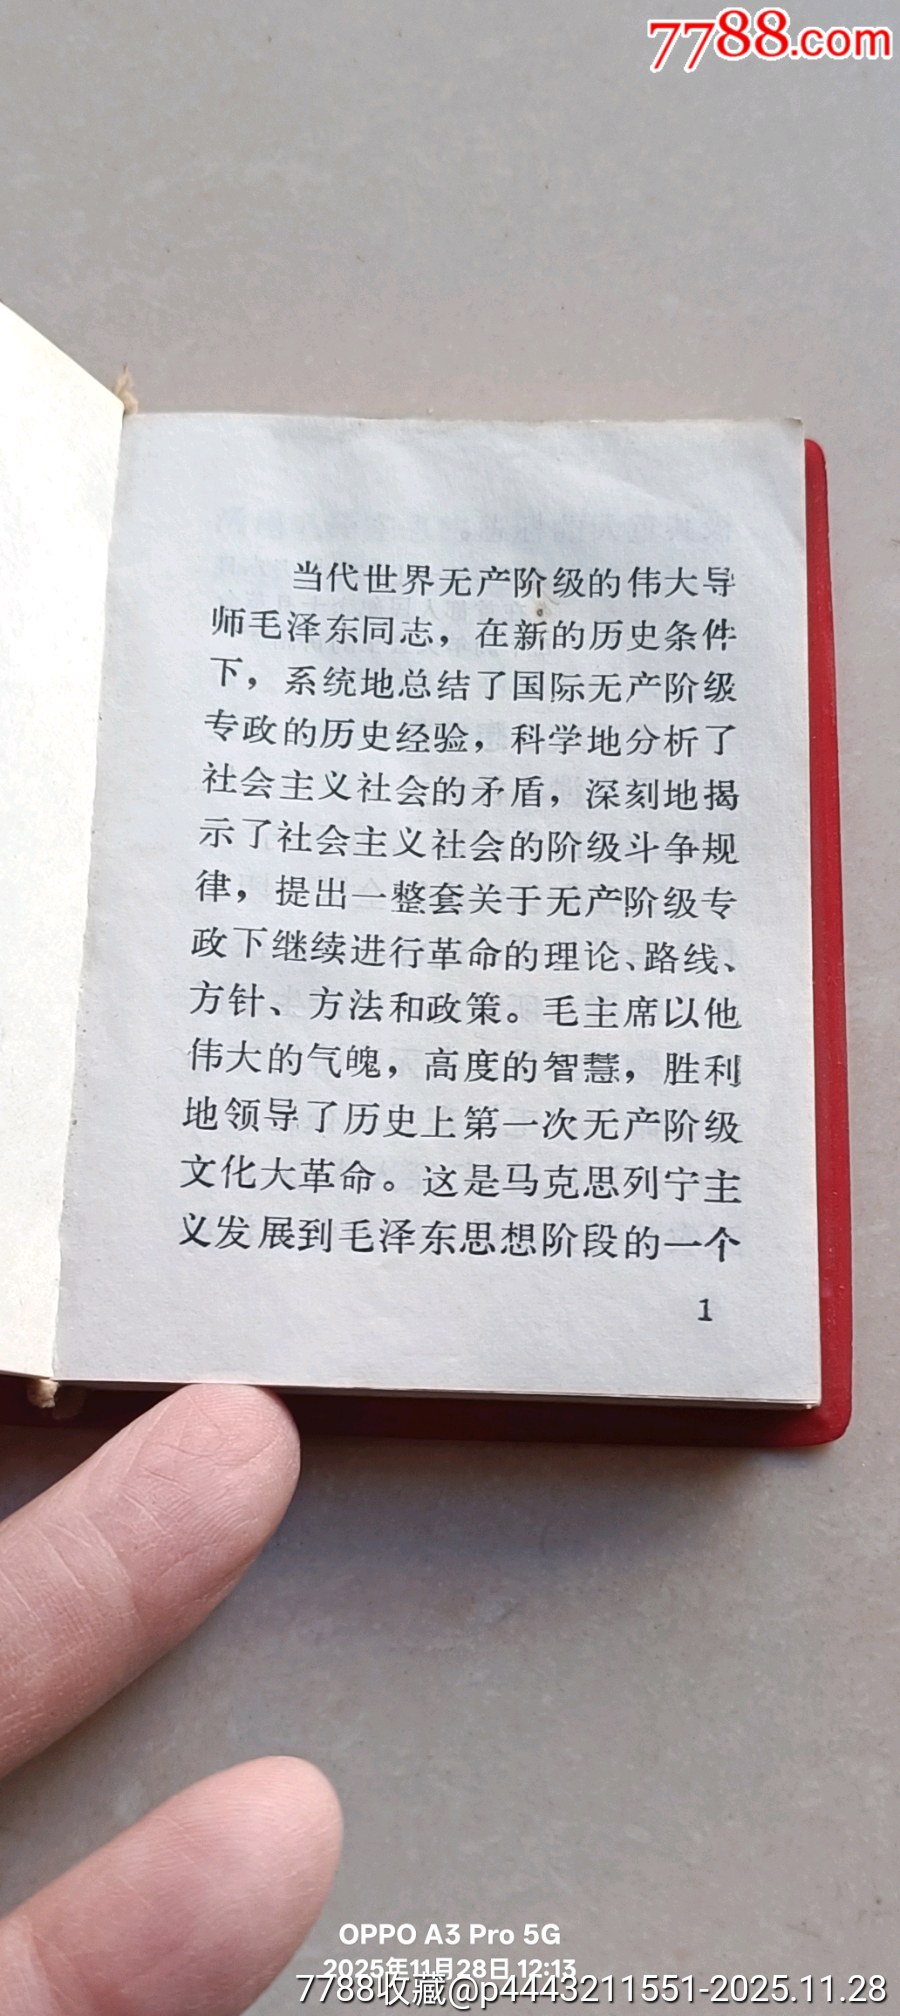 7788.com
当代世界无产阶级的伟大导
师毛泽东同志，在新的历史条件
下，系统地总结了国际无产阶级
专政的历史经验，科学地分析了
社会主义社会的矛盾，深刻地揭
示了社会主义社会的阶级斗争规
律，提出一整套关于无产阶级专
政下继续进行革命的理论、路线、
方针、方法和政策。毛主席以他
伟大的气魄，高度的智慧，胜利
地领导了历史上第一次无产阶级
文化大革命。这是马克思列宁主
义发展到毛泽东思想阶段的一个
1
OPPO A3 Pro 5G
2025年11月28日 12:13
7788收藏@p4443211551-2025.11.28